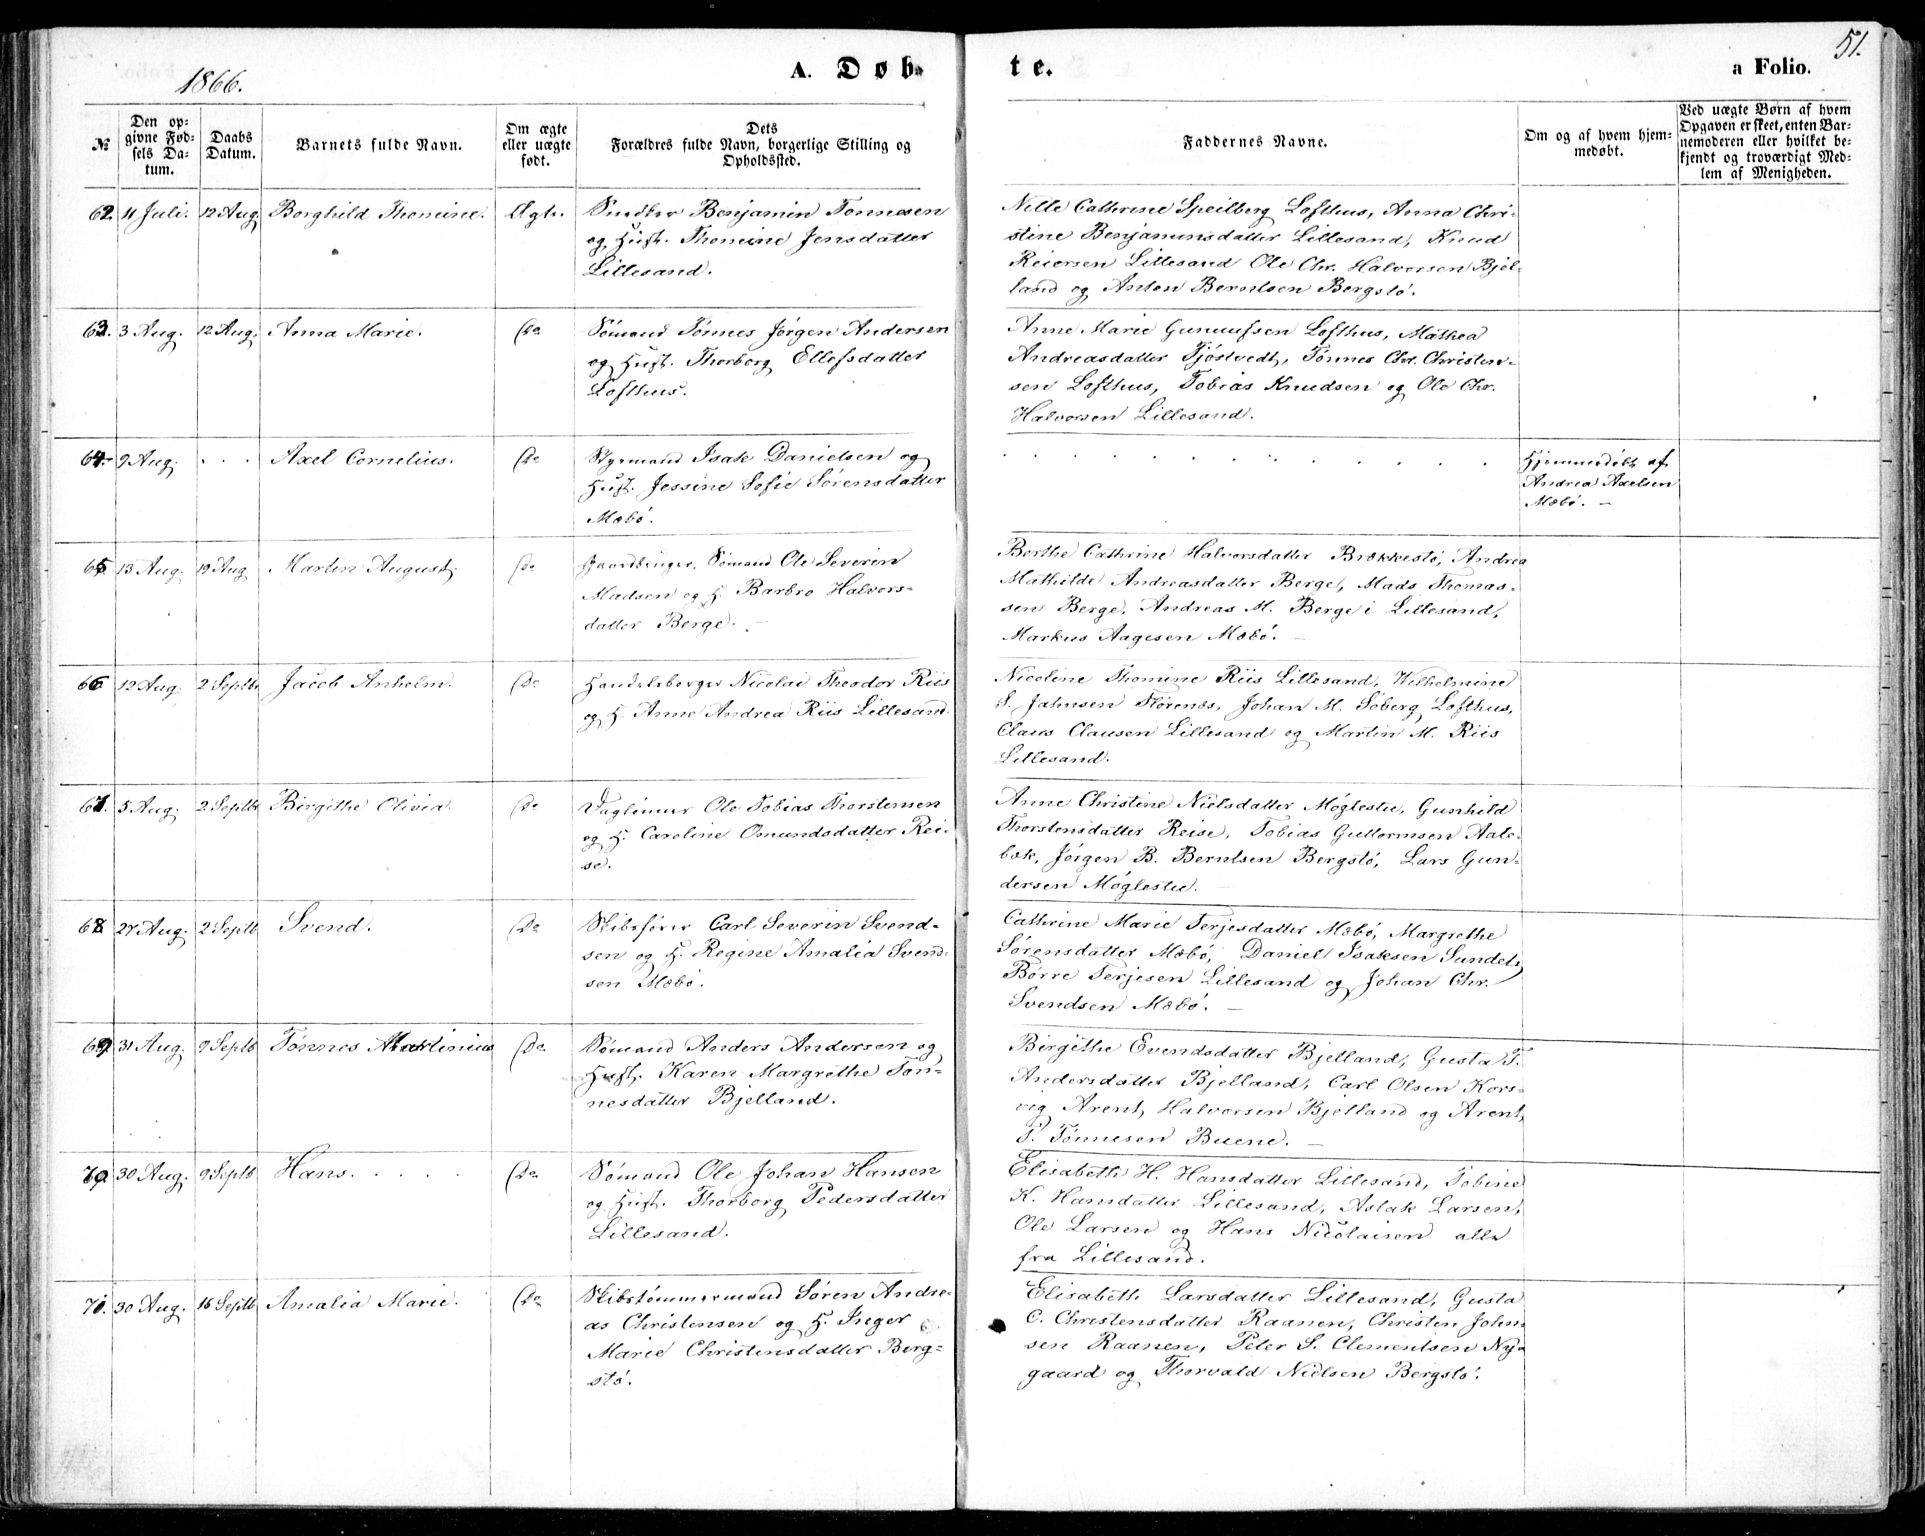 1866.
A. Døb-
te.
a Folio.
51.
№
Den op-
givne Fød-
sels Da-
tum.
Daabs
Datum.
Barnets fulde Navn.
Om ægte
eller uægte
født.
Dets
Forældres fulde Navn, borgerlige Stilling og
Opholdssted.
Faddernes Navne.
Om og af hvem hjem-
medøbt.
Ved uægte Børn af hvem
Opgaven er skeet, enten Bar-
nemoderen eller hvilket be-
kjendt og troværdigt Med-
lem af Menigheden.
62. 11 Juli. 12 Aug. Borghild Thomine. Ægte.
Benjamin Tønnesen
og Hust. Thomine Jensdatter
Lillesand.
Nille Cathrine Speilberg Lofthus, Anna Chri-
stine Benjaminsdatter Lillesand, Knud
Reiersen Lillesand Ole Chr. Halvorsen Bjel-
land og Anton Berntsen Bergstø.
63. 3 Aug. 12 Aug. Anna Marie. Do
Sømand Tønnes Jørgen Andersen
og Hust. Thorborg Ellefsdatter
Lofthus.
Anne Marie Gunnufsen Lofthus, Mathea
Andreasdatter Tjøstvedt, Tønnes Chr. Christen-
sen Lofthus, Tobias Knudsen og Ole Chr.
Halvorsen Lillesand.
64. 9 Aug. . . . Axel Cornelius. Do
Styrmand Isak Danielsen og
Hust. Jessine Sofie Sørensdatter
Mæbø.
Hjemmedøbt af
Andrea Axelsen
Mæbø. -
65. 13 Aug. 19 Aug Martin August. Do
Gaardbruger, Sømand Ole Severin
Madsen og H. Barbro Halvors-
datter Berge. -
Berthe Cathrine Halvorsdatter Brækkestø, Andrea
Mathilde Andreasdatter Berge, Mads Thomas-
sen Berge, Andreas M. Berge i Lillesand,
Markus Aagesen Mæbø. -
66 12 Aug. 2 Septb. Jacob Anhelm. Do
Handelsborger Nicolai Theodor Riis
og H. Anne Andrea Riis Lillesand.
Nicoline Thomine Riis Lillesand, Wilhelmine
S. Jahnsen Flørenæs, Johan M. Søberg Lofthus,
Claus Clausen Lillesand og Martin M. Riis
Lillesand.
67. 5 Aug. 2 Septb. Birgithe Olivia. Do
Daglønner Ole Tobias Thorstensen
og H. Caroline Omundsdatter Rei-
se.
Anne Christine Nielsdatter Møglestue, Gunhild
Thorstensdatter Reise, Tobias Guttormsen Aale-
bæk, Jørgen B. Berntsen Bergstø, Lars Gun-
dersen Møglestue. -
68. 27 Aug. 2 Septb Svend. Do
Skibsfører Carl Severin Svend-
sen og H. Regine Amalia Svend-
sen Mæbø.
Cathrine Marie Terjesdatter Mæbø, Margrethe
Sørensdatter Mæbø, Daniel Isaksen Sundet,
Børre Terjesen Lillesand og Johan Chr.
Svendsen Mæbø. -
69. 31 Aug. 9 Septb Tønnes Martinius Do
Sømand Anders Andersen og
Hust. Karen Margrethe Tøn-
nesdatter Bjelland.
Birgithe Evendsdatter Bjelland, Gusta T.
Andersdatter Bjelland, Carl Olsen Kors-
vig Arent Halvorsen Bjelland og Arent
T. Tønnesen Buene. -
70. 30 Aug. 9 Septb Hans. . . . . Do
Sømand Ole Johan Hansen
og Hust. Thorborg Pedersdatter
Lillesand.
Elisabeth H. Hansdatter Lillesand, Tobine
K. Hansdatter Lillesand, Aslak Larsen,
Ole Larsen og Hans Nicolaisen alle
fra Lillesand.
71. 30 Aug. 16 Septb Amalia Marie. Do
Skibstømmermand Søren Andre-
as Christensen og H. Inger
Marie Christensdatter Berg-
stø.
Elisabeth Larsdatter Lillesand, Gusta
C. Christensdatter Raanen, Christen John-
sen Raanen, Peter S. Clementsen Ny-
gaard og Thorvald Nielsen Bergstø.